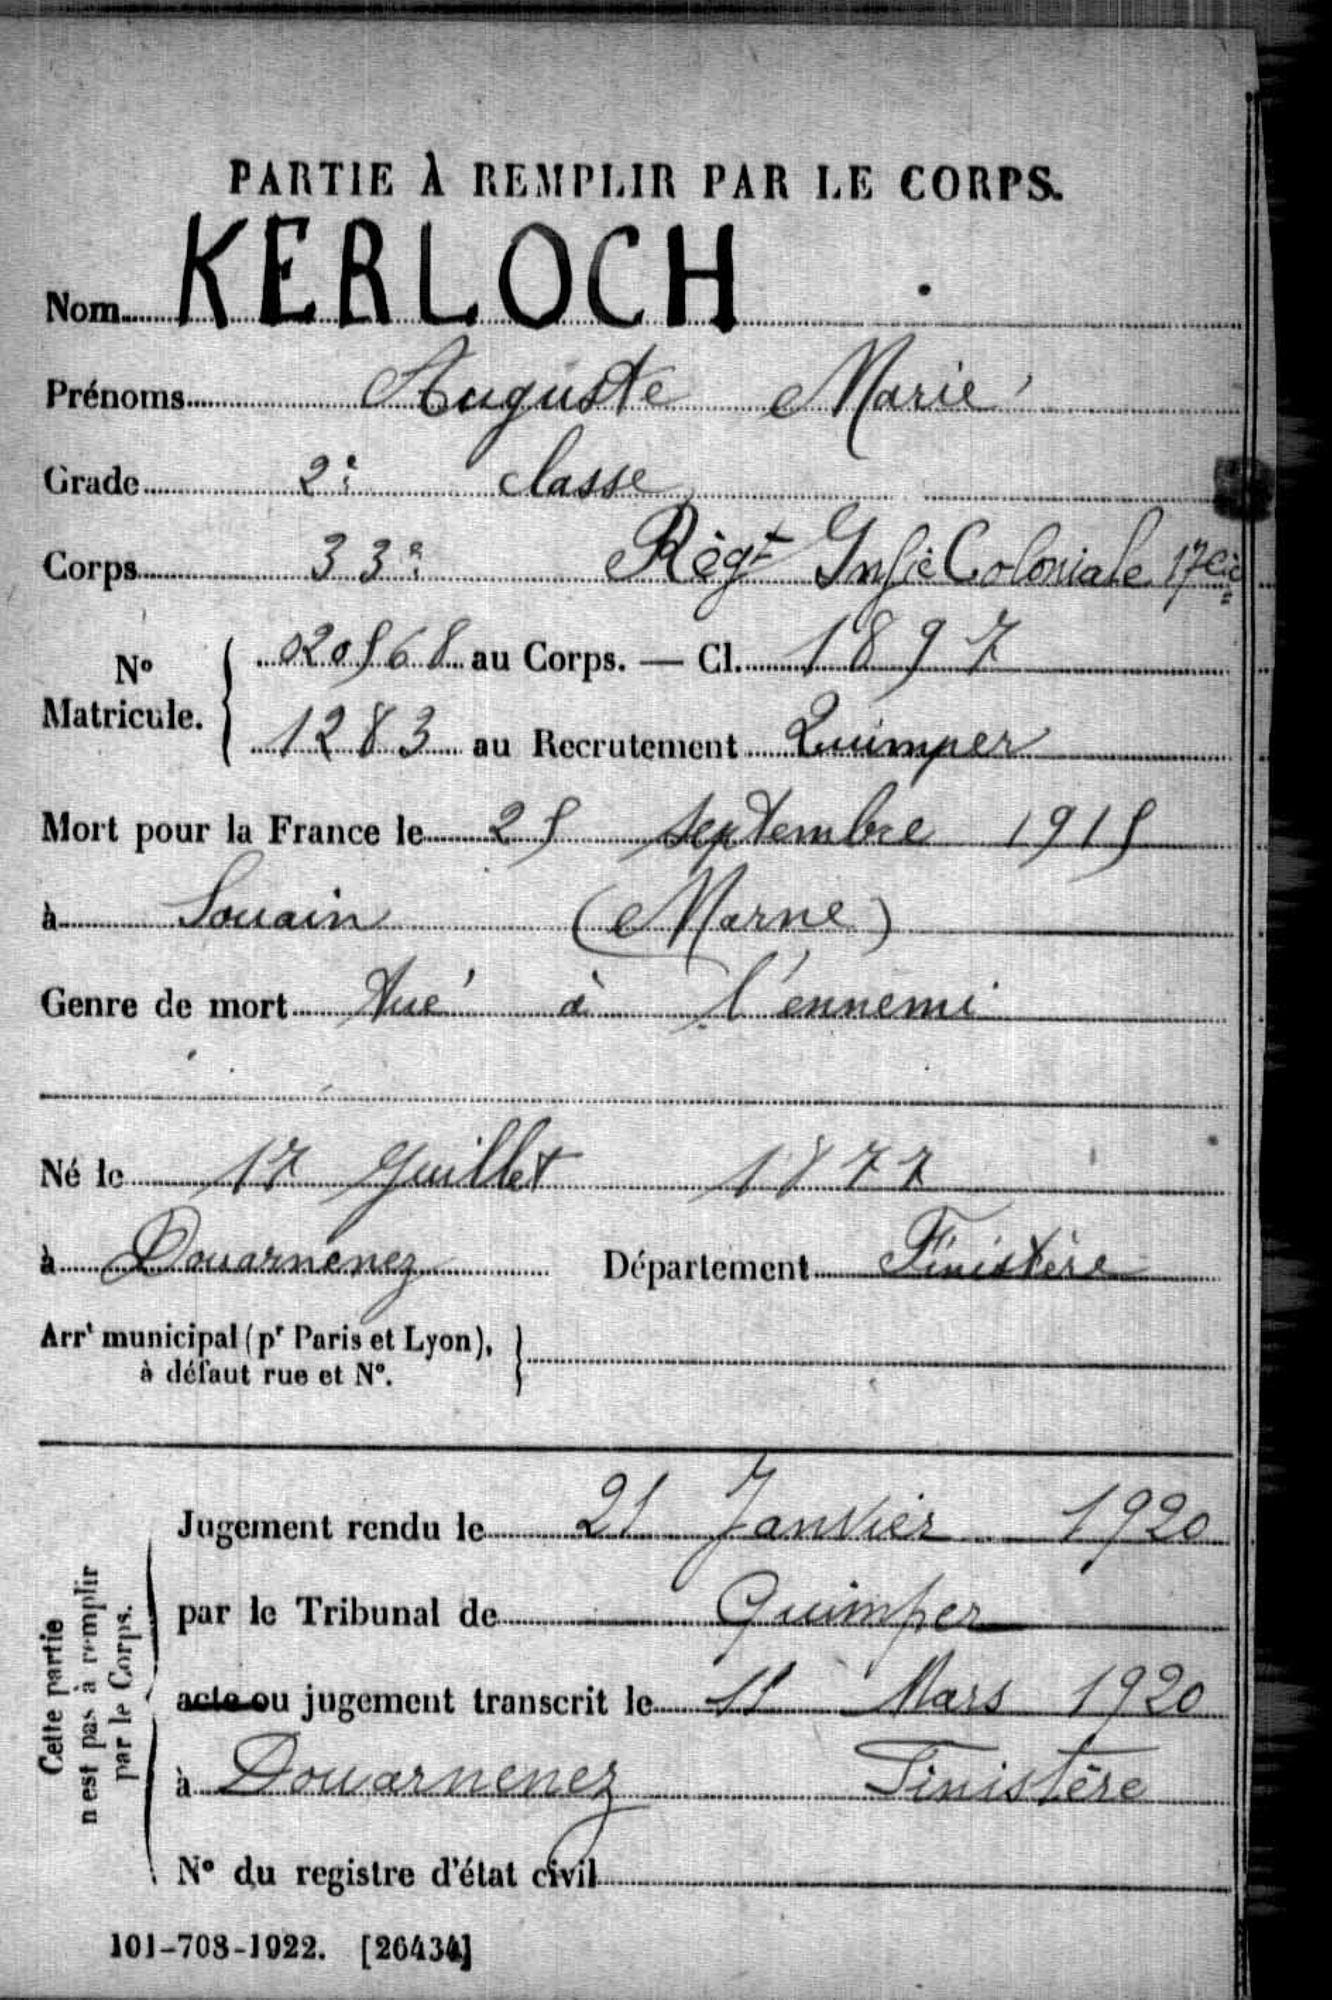 PARTIE À REMPLIR PAR LE CORPS.
Nom KERLOCH
Prénoms Auguste Marie
Grade 2e classe
Corps 33e Règt Infie Coloniale 17e Cie
No Matricule. 020568 au Corps. — Cl. 1897
1283 au Recrutement Quimper
Mort pour la France le 25 septembre 1915
à Souain (Marne)
Genre de mort tué à l'ennemi
Né le 17 Juillet 1877
à Douarnenez Département Finistère
Arrt municipal (pr Paris et Lyon),
à défaut rue et No.
Cette partie
n'est pas à remplir
par le Corps.
Jugement rendu le 21 Janvier 1920
par le Tribunal de Quimper
acte ou jugement transcrit le 11 Mars 1920
à Douarnenez Finistère
No du registre d'état civil
101-708-1922. [26434]